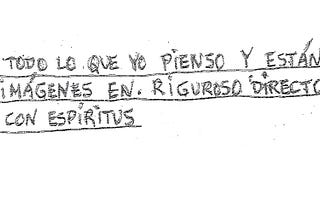 TODO LO QUE YO PIENSO Y ESTÁN
IMÁGENES EN. RIGUROSO DIRECTO
CON ESPÍRITUS